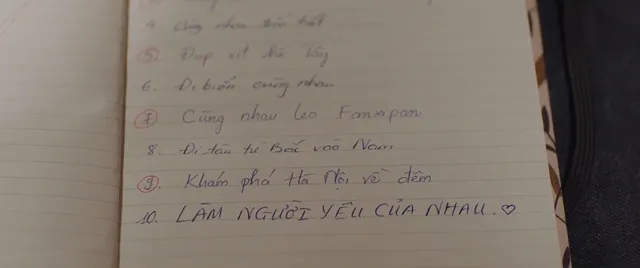 4. Cùng nhau đón tết
5. Đạp vịt hồ Tây
6. Đi biển cùng nhau
7. Cùng nhau leo Fanxipan
8. Đi tàu từ Bắc vào Nam
9. Khám phá Hà Nội về đêm
10. LÀM NGƯỜI YÊU CỦA NHAU. ♡